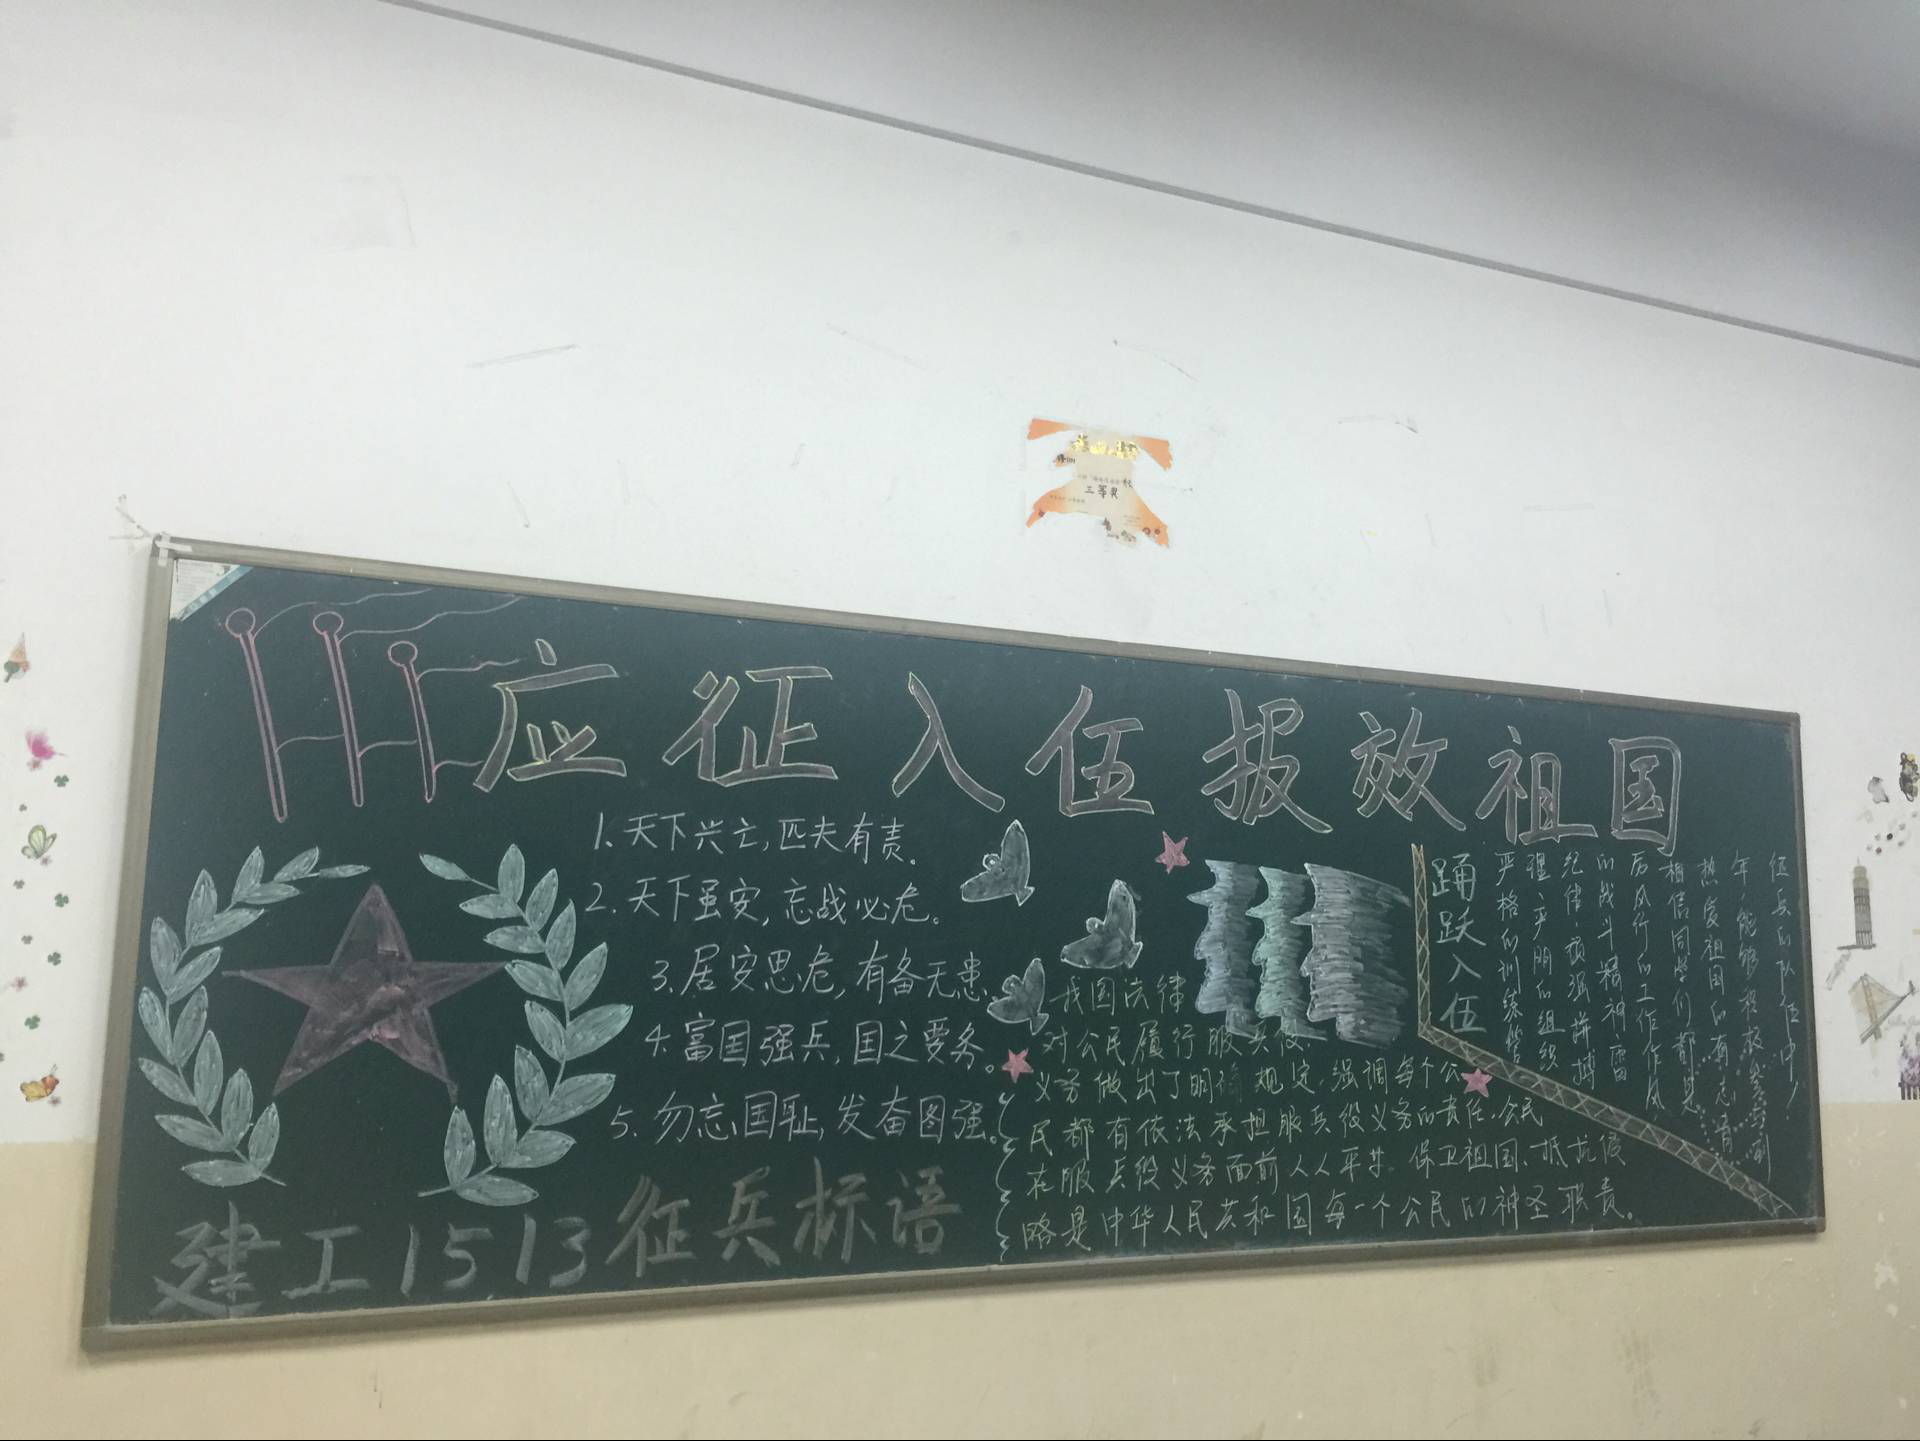 三等奖
应征入伍报效祖国
1.天下兴亡,匹夫有责。
2.天下虽安,忘战必危。
3.居安思危,有备无患。
4.富国强兵,国之要务。
5.勿忘国耻,发奋图强。
建工1513征兵标语
我国法律
对公民履行服兵役
义务做出了明确规定,强调每个公
民都有依法承担服兵役义务的责任.公民
在服兵役义务面前人人平等.保卫祖国、抵抗侵
略是中华人民共和国每一个公民的神圣职责。
踊跃入伍
严格的训练
强,严明的组织
纪律,顽强拼搏
的战斗精神雷
厉风行的工作作风
相信同学们都是
热爱祖国的有志青
年,能够积极参与到
征兵的队伍中!